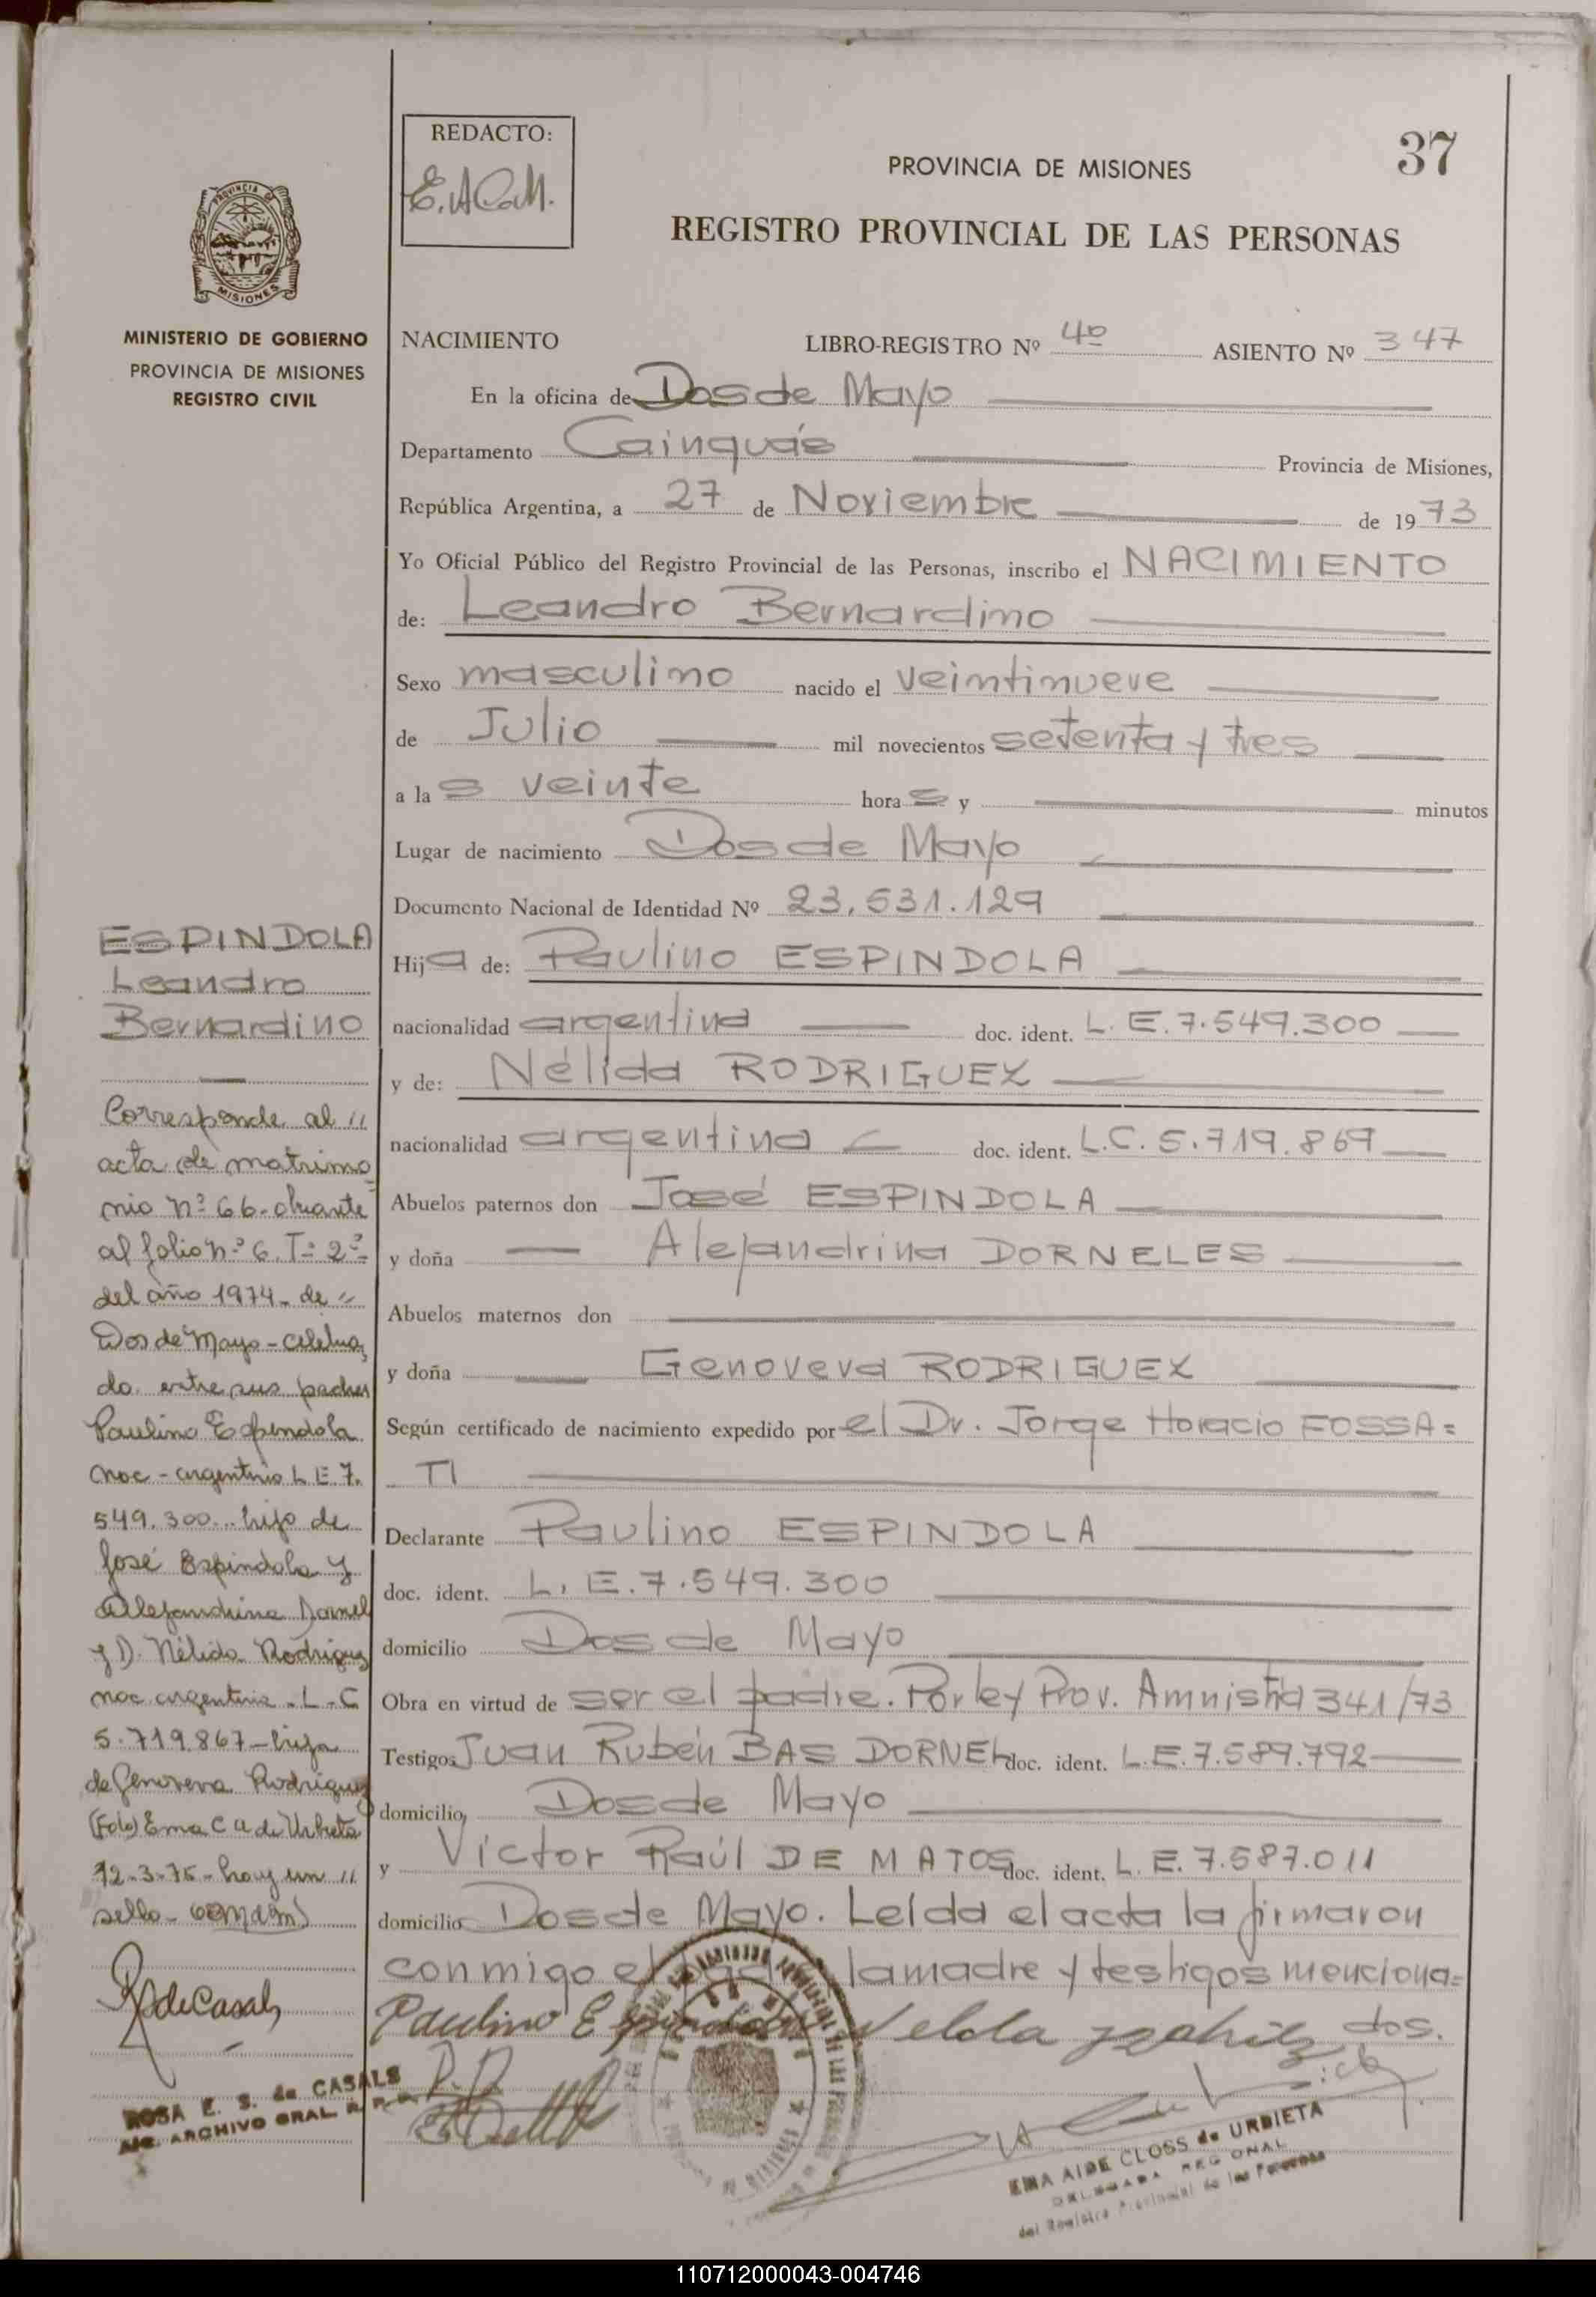 37
REDACTO:
E.ACaM.
PROVINCIA DE MISIONES
REGISTRO PROVINCIAL DE LAS PERSONAS
PROVINCIA DE
MISIONES
MINISTERIO DE GOBIERNO
PROVINCIA DE MISIONES
REGISTRO CIVIL
NACIMIENTO LIBRO-REGISTRO Nº 4º ASIENTO Nº 347
En la oficina de Dos de Mayo
Departamento Cainguás Provincia de Misiones,
República Argentina, a 27 de Noviembre de 1973
Yo Oficial Público del Registro Provincial de las Personas, inscribo el NACIMIENTO
de: Leandro Bernardino
Sexo masculino nacido el veintinueve
de Julio mil novecientos setenta y tres
a las veinte horas y minutos
Lugar de nacimiento Dos de Mayo
Documento Nacional de Identidad Nº 23.531.129
Hija de: Paulino ESPINDOLA
nacionalidad argentina doc. ident. L.E.7.549.300
y de: Nélida RODRIGUEZ
nacionalidad argentina doc. ident. L.C.5.719.867
Abuelos paternos don José ESPINDOLA
y doña Alejandrina DORNELES
Abuelos maternos don
y doña Genoveva RODRIGUEZ
Según certificado de nacimiento expedido por el Dr. Jorge Horacio FOSSA=
TI
Declarante Paulino ESPINDOLA
doc. ident. L.E.7.549.300
domicilio Dos de Mayo
Obra en virtud de ser el padre. Por ley Prov. Amnistía 341/73
Testigos Juan Rubén BAS DORNEL doc. ident. L.E.7.589.792
domicilio, Dos de Mayo
y Víctor Raúl DE MATOS doc. ident. L.E.7.587.011
domicilio Dos de Mayo. Leída el acta la firmaron
conmigo el padre, la madre y testigos menciona=
dos.
Paulino Espindola
ESPINDOLA
Leandro
Bernardino
Corresponde al //
acta de matrimo
nio nº 66. obrante
al folio nº 6. Tº 2º
del año 1974. de //
Dos de Mayo - celebra
do entre sus padres
Paulino Espindola
nac - argentino L E 7.
549.300.. hijo de
José Espindola y
Alejandrina Dornel
y D. Nélida Rodriguez
nac argentina - L - C
5.719.867 - hija
de Genoveva Rodriguez
(Fdo) Ema C A de Urbieta
12-3-75 - hay un //
sello-
RdeCasals
ROSA E. S. de CASALS
ARCHIVO GRAL R. P. P.
EMA AIDE CLOSS de URBIETA
DELEGADA REGIONAL
del Registro Provincial de las Personas
110712000043-004746